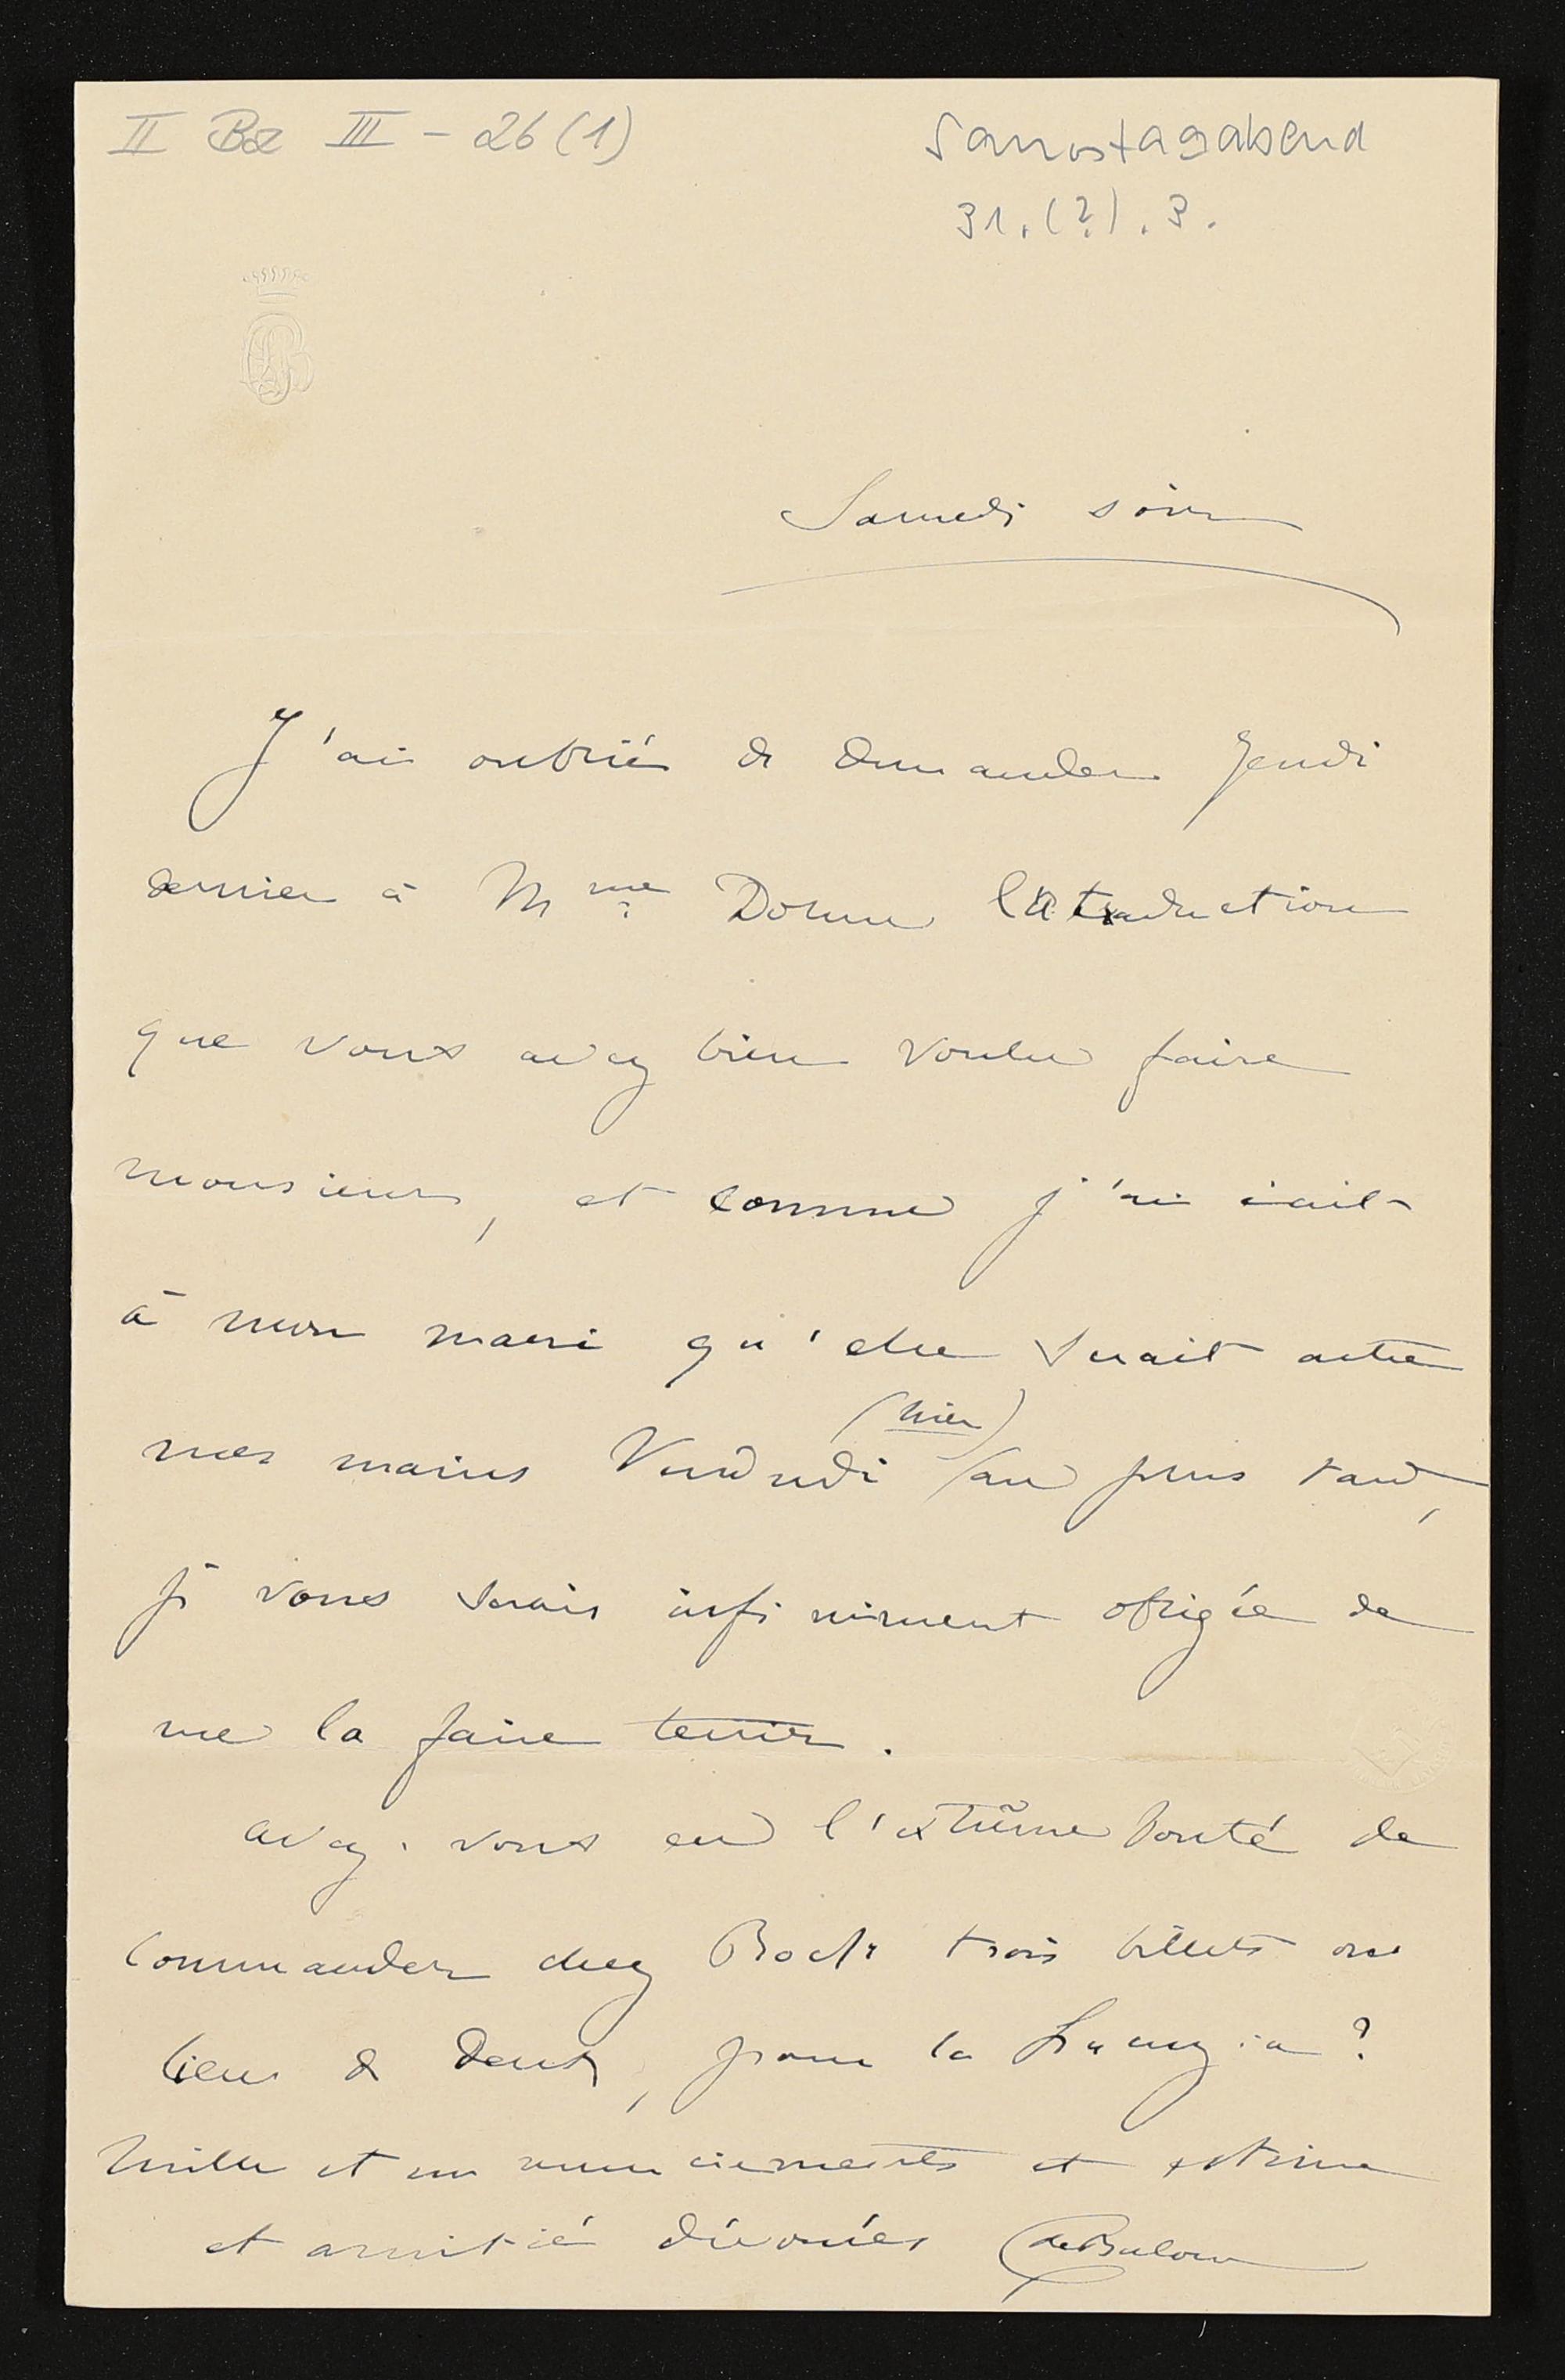 II Bz III - 26 (1)
Samstagabend
31. (?). 3.
Samedi soir
J'ai oublié de demander Jeudi
dernier à Mme Dohm la traduction
que vous avez bien voulu faire
monsieur, et comme j'ai écrit
à mon mari qu'elle serait entre
mes mains Vendredi (hier) au plus tard,
je vous serais infiniment obligée de
me la faire tenir.
avez-vous eu l'extrême bonté de
commander chez Bock trois billets au
lieu de deux, pour la
Mille et un remerciements et estime
et amitié dévouées CdeBulow